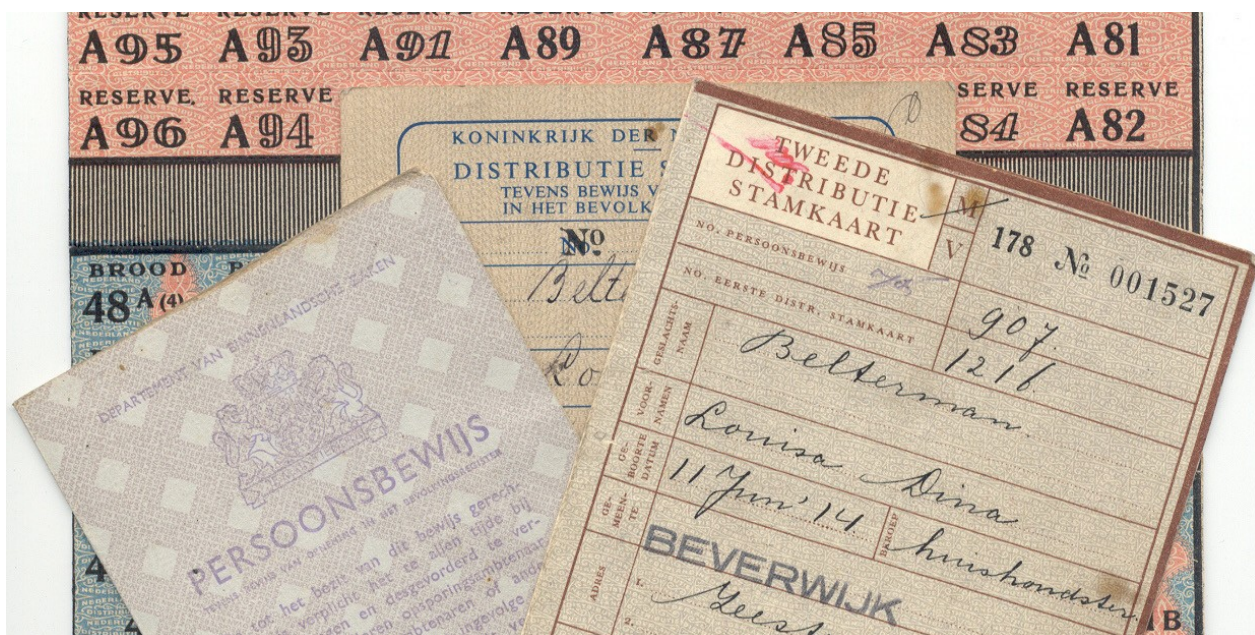 RESERVE
A95 A93 A91 A89 A87 A85 A83 A81
RESERVE. RESERVE SERVE RESERVE
A96 A94 84 A82
BROOD
48 A (4)
KONINKRIJK DER N
DISTRIBUTIE S
TEVENS BEWIJS V
IN HET BEVOLK
No
Belt
Lo
DEPARTEMENT VAN BINNENLANDSCHE ZAKEN
PERSOONSBEWIJS
TEVENS BEWIJS VAN OPNEMING IN HET BEVOLKINGSREGISTER
tot het bezit van dit bewijs gerech-
verplicht het te allen tijde bij
en desgevorderd te ver-
opsporingsambtenaar
of ande
ingevolge
TWEEDE
DISTRIBUTIE
STAMKAART
M
V
178 No 001527
NO. PERSOONSBEWIJS
907.
NO. EERSTE DISTR. STAMKAART
1216
GESLACHTS-
NAAM
Belterman.
VOOR-
NAMEN
Louisa Dina
GE-
BOORTE
DATUM
11 Jun' 14
BEROEP
huishoudster
GE-
MEEN-
TE
BEVERWIJK
ADRES
1.
Geest
2.
B